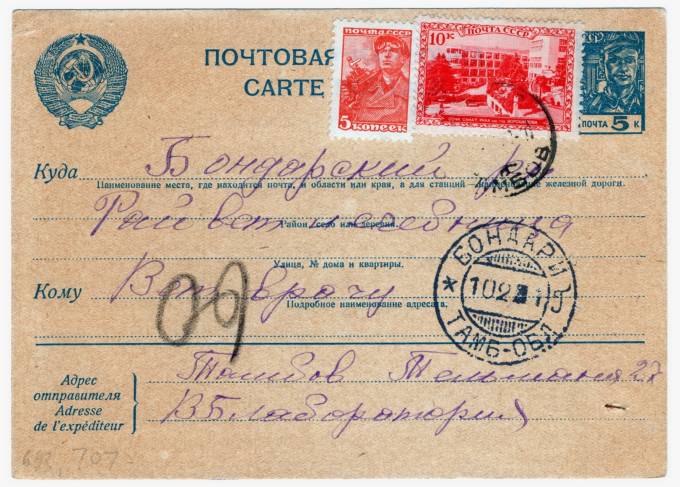 ПОЧТОВАЯ
CARTE
ПОЧТА СССР
5 копеек
10К ПОЧТА СССР
ПОЧТА 5 К
Куда Бондарский
Наименование места, где находится почта, и области или края, а для станций — наименование железной дороги.
Рай вет лечебница
Район, село или деревня.
Улица, № дома и квартиры.
Кому Вет врачу
Подробное наименование адресата.
09
БОНДАРИ
ТАМБ-ОБЛ
Адрес
отправителя
Adresse
de l'expéditeur
Тамбов Тельмана 27
В Б лаборатория
707